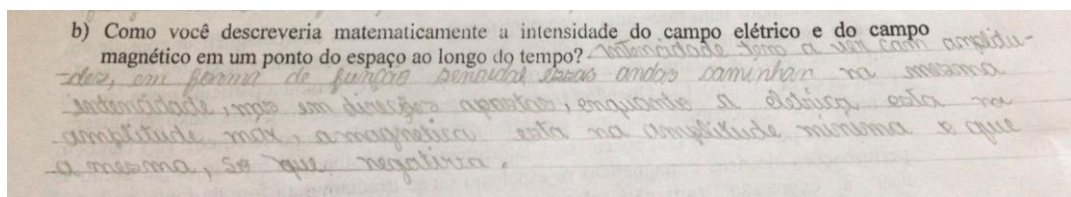 b) Como você descreveria matematicamente a intensidade do campo elétrico e do campo
magnético em um ponto do espaço ao longo do tempo? Intencidade tem a ver com amplitu-
des, em forma de função senoidal essas ondas caminhan na mesma
intencidade, mas em direções opostas, enquanto a eletrica esta na
amplitude max, a magnetica esta na amplitude minima e que
a mesma, so que negativa.